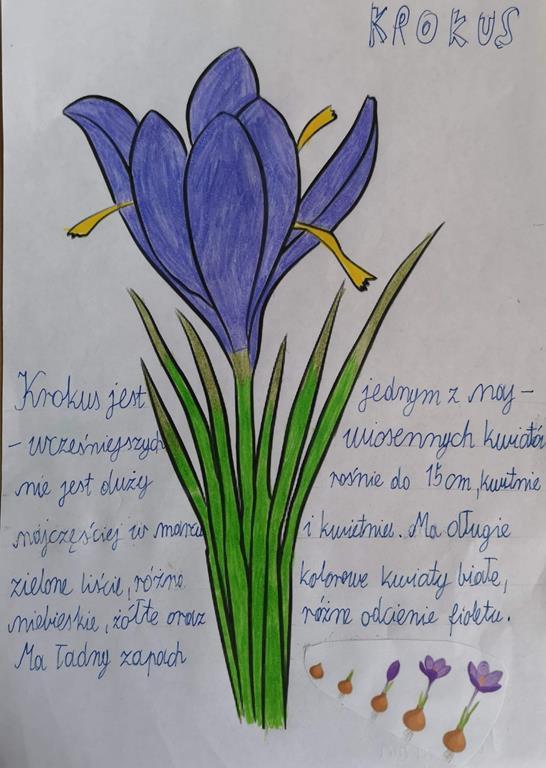 KROKUS
Krokus jest jednym z naj-
-wcześniejszych wiosennych kwiatów
nie jest duży rośnie do 15cm, kwitnie
najczęściej w marcu i kwietniu. Ma długie
zielone liście, różne kolorowe kwiaty białe,
niebieskie, żółte oraz różne odcienie fioletu.
Ma ładny zapach